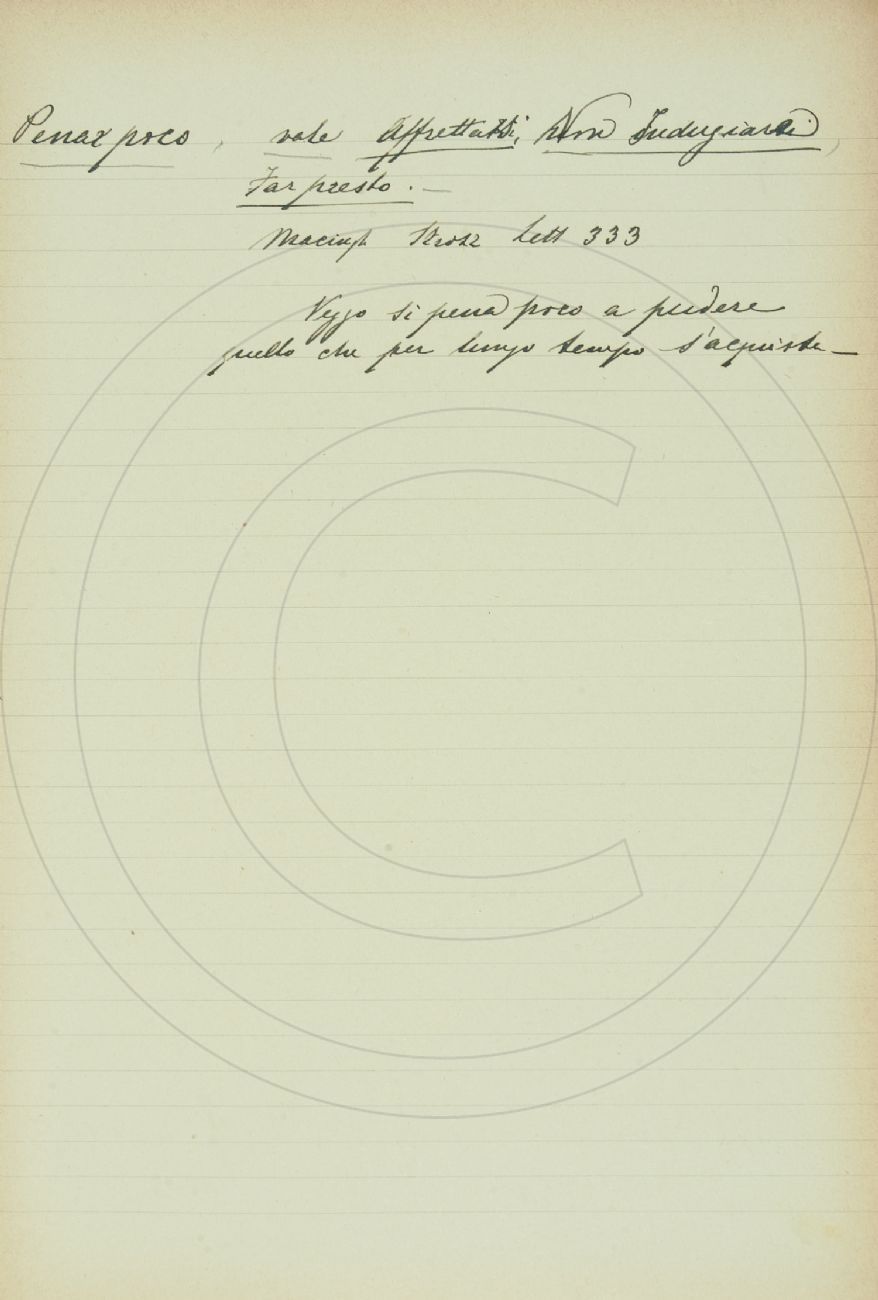 Penar poco, vale Affrettarsi, Non Indugiare,
Far presto. —
Macingh Strozz Lett 333
Veggo si pena poco a perdere
quello che per lungo tempo s'acquista —